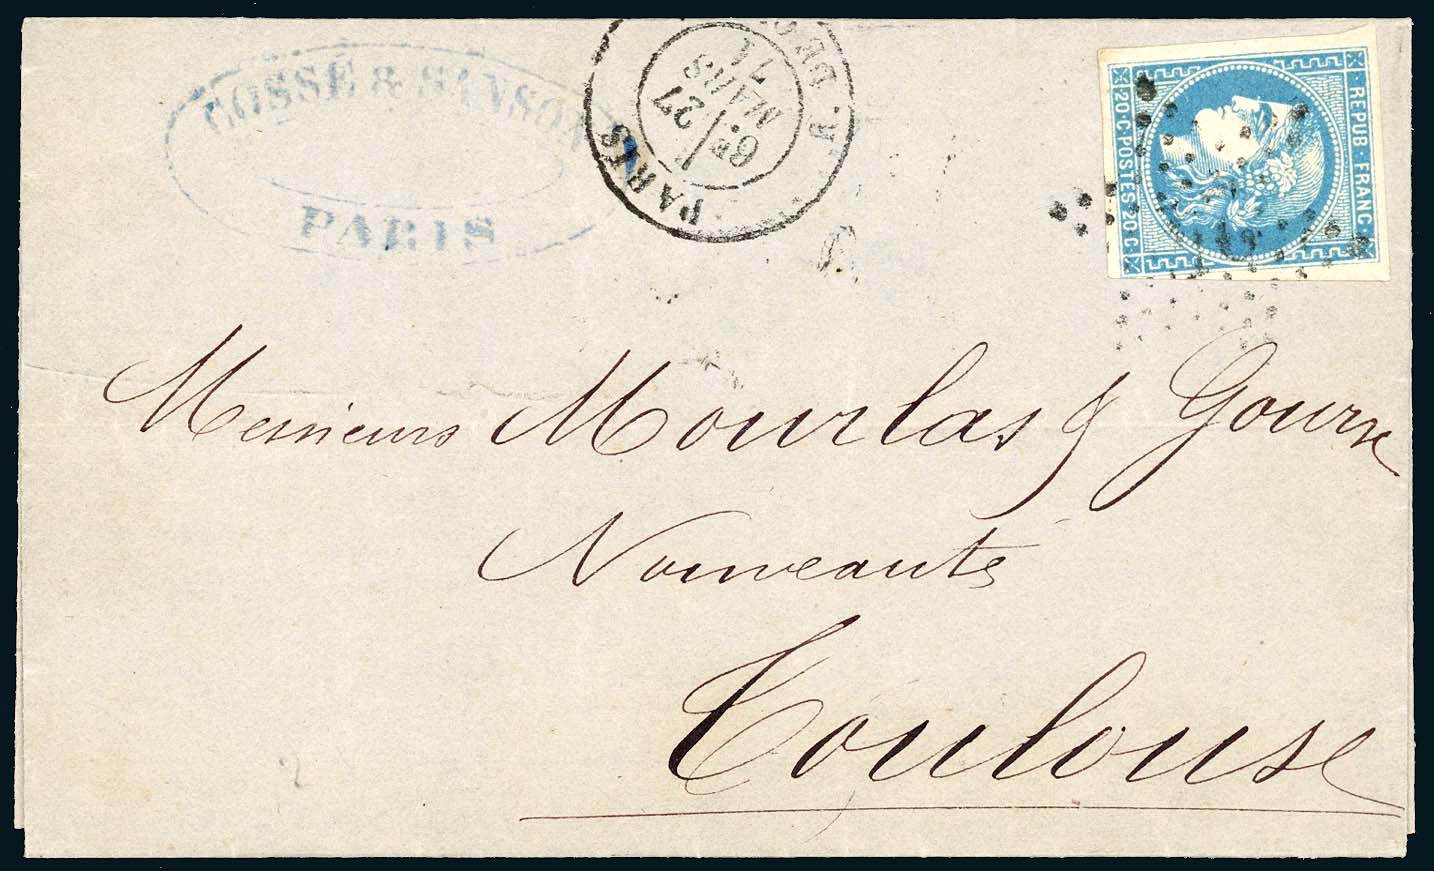 COSSE & SANSON
PARIS
PARIS
6E
27
MARS
71
REPUB · FRANC
20 · C · POSTES · 20 · C
Messieurs Mourlas & Gourse
Nouveautés
Toulouse